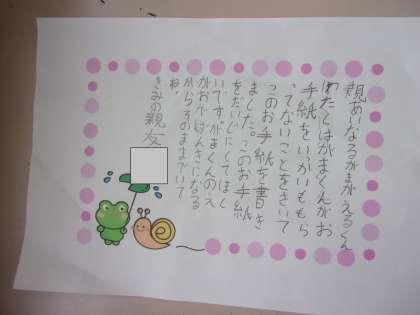 親あいなるがまがえるくん
わたしはがまくんがお
手紙をいっかいももら
ってないことをきいて
このお手紙を書き
ました。このお手紙
をだいじにしてほし
いです。がまくんのえ
がおがげんきになる
からそのままでいて
ね。
きみの親友